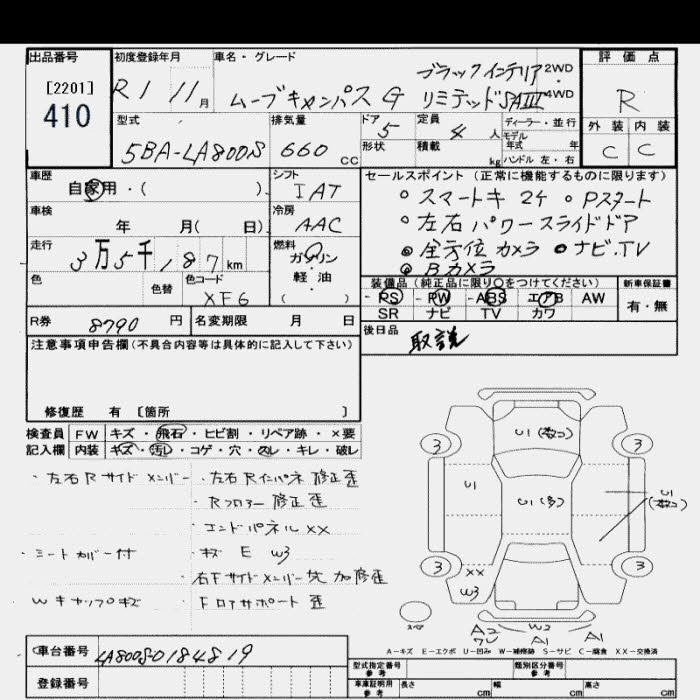 出品番号
[2201]
410
初度登録年月
R1 11月
車名・グレード
ブラックインテリア 2WD
ムーブキャンバス G リミテッドSAIII 4WD
評価点
R
外装 内装
C C
型式
5BA-LA800S
排気量
660 CC
ドア 5
形状
定員 4 人
積載 kg
ディーラー・並行
モデル
年式 年
ハンドル 左・右
車歴
自家用・( )
シフト
IAT
車検
年 月( 日)
冷房
AAC
走行
3万5千187km
燃料
ガソリン
・
軽・油
( )
色
色替
色コード
XF6
セールスポイント(正常に機能するものに限ります)
○スマートキ 2ケ ○Pスタート
○左右パワースライドドア
◎全方位カメラ ●ナビ.TV
◎Bカメラ
装備品(純正品に限り○をつけてください)
PS PW ABS エアB AW
SR ナビ TV カワ
新車保証書
有・無
R券 8790 円
名変期限 月 日
後日品
取説
注意事項申告欄(不具合内容等は具体的に記入して下さい)
修復歴 有 [箇所 ]
検査員 FW キズ・飛石・ヒビ割・リペア跡・×要
記入欄 内装 キズ・汚レ・コゲ・穴・スレ・キレ・破レ
・左右Rサイドメンバー ・左右Rインパネ修正歪
・Rフロアー修正歪
・エンドパネルXX
・シートカバー付 ・キズ E W3
・右Fサイドメンバー穴加修歪
Wキャップキズ Fロアサポート 歪
U1(数コ)
3 3
U1
U1(多)
U1
(数コ)
3 3
XX
W3
スペア
W2
A2
A1 A1
A-キズ E-エクボ U-凹み W-補修跡 S-サビ C-腐食 XX-交換済
車台番号 LA800S-0184819
登録番号
型式指定番号
参考
類別区分番号
参考
車庫証明用
参考
長さ cm 幅 cm 高さ cm